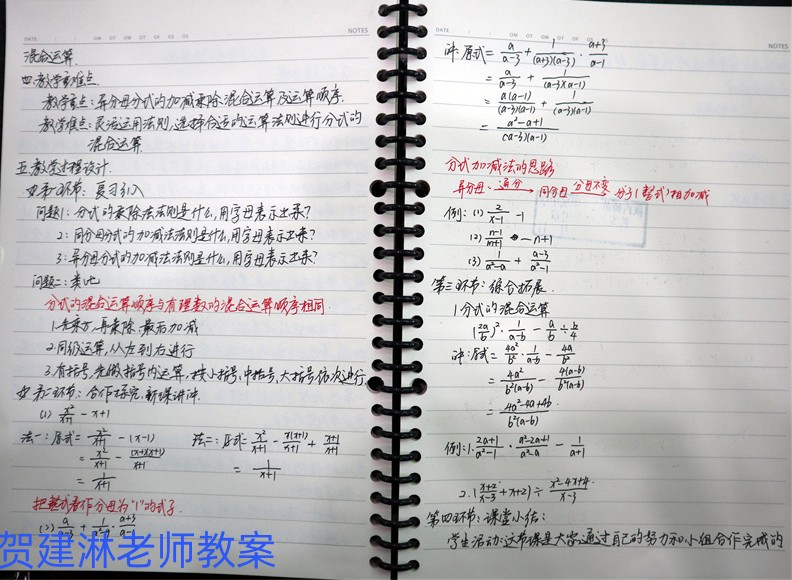 DATE NOTES
混合运算.
四.教学重难点.
教学重点:异分母分式的加减乘除混合运算及运算顺序.
教学难点:灵活运用法则,选择合适的运算法则进行分式的
混合运算.
五.教学过程设计.
第一环节:复习引入
问题1:分式的乘除法法则是什么,用字母表示出来?
2:同分母分式的加减法法则是什么,用字母表示出来?
3:异分母分式的加减法法则是什么,用字母表示出来?
问题二:类比
分式的混合运算顺序与有理数的混合运算顺序相同.
1.先乘方,再乘除,最后加减
2.同级运算,从左到右进行
3.有括号,先做括号内运算,按小括号,中括号,大括号依次进行.
第二环节:合作探究,新课讲冲.
(1) x²/(x+1) - x+1
法一:原式= x²/(x+1) - (x-1)
= x²/(x+1) - (x-1)(x+1)/(x+1)
= 1/(x+1)
法二:原式= x²/(x+1) - x(x+1)/(x+1) + (x+1)/(x+1)
= 1/(x+1)
把整式看作分母为"1"的式子.
(2) a/(a-3) + 1/(a²-9) · (a+3)/(a-1)
贺建淋老师教案
DATE NOTES
冲:原式= a/(a-3) + 1/((a+3)(a-3)) · (a+3)/(a-1)
= a/(a-3) + 1/((a-3)(a-1))
= a(a-1)/((a-3)(a-1)) + 1/((a-3)(a-1))
= (a²-a+1)/((a-3)(a-1))
分式加减法的思路
异分母 通分→ 同分母 分母不变→ 分子(整式)相加减
例:(1) 2/(x-1) -1
(2) (n-1)/(n+1) - n+1
(3) 1/(a²-a) + (a-3)/(a²-1)
第三环节:综合拓展.
1分式的混合运算
(2a/b)² · 1/(a-b) - a/b ÷ b/4
冲:原式= 4a²/b² · 1/(a-b) - 4a/b²
= 4a²/(b²(a-b)) - 4(a-b)/(b²(a-b))
= (4a²-4a+4b)/(b²(a-b))
例:1. (2a+1)/(a²-1) · (a²-2a+1)/(a²-a) - 1/(a+1)
2.((x+2)/(x-3) + x+2) ÷ (x²-4x+4)/(x-3)
第四环节:课堂小结:
学生活动:这节课是大家通过自己的努力和小组合作完成的